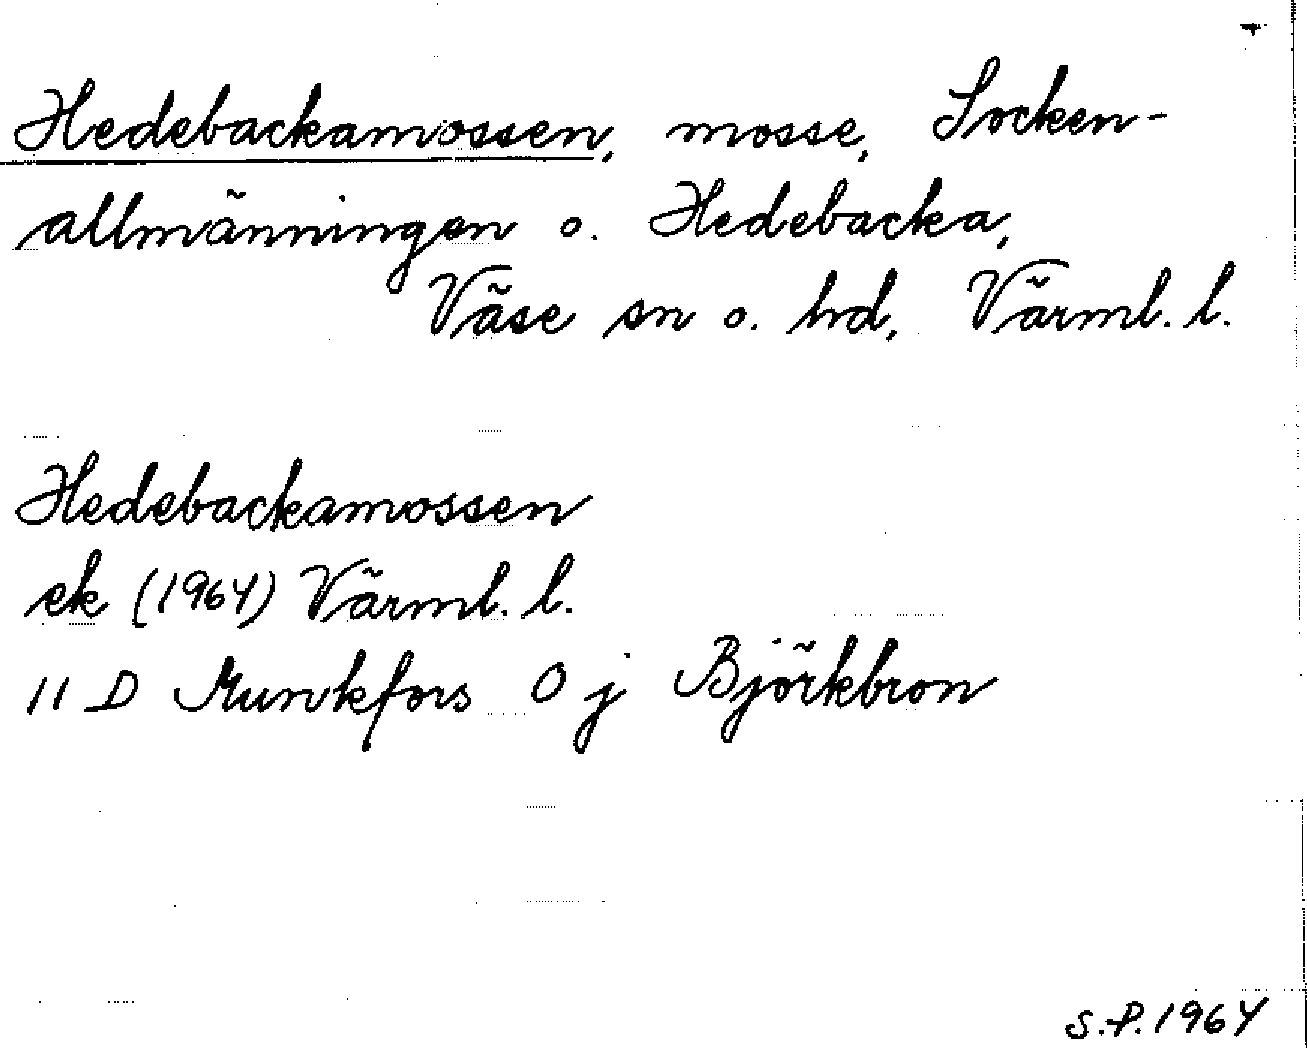 Hedebackamossen, mosse, Socken-
allmänningen o. Hedebacka,
Väse sn o. hd, Värml. l.
Hedebackamossen
ek (1964) Värml. l.
11 D Munkfors 0 j Björkbron
S.P. 1964